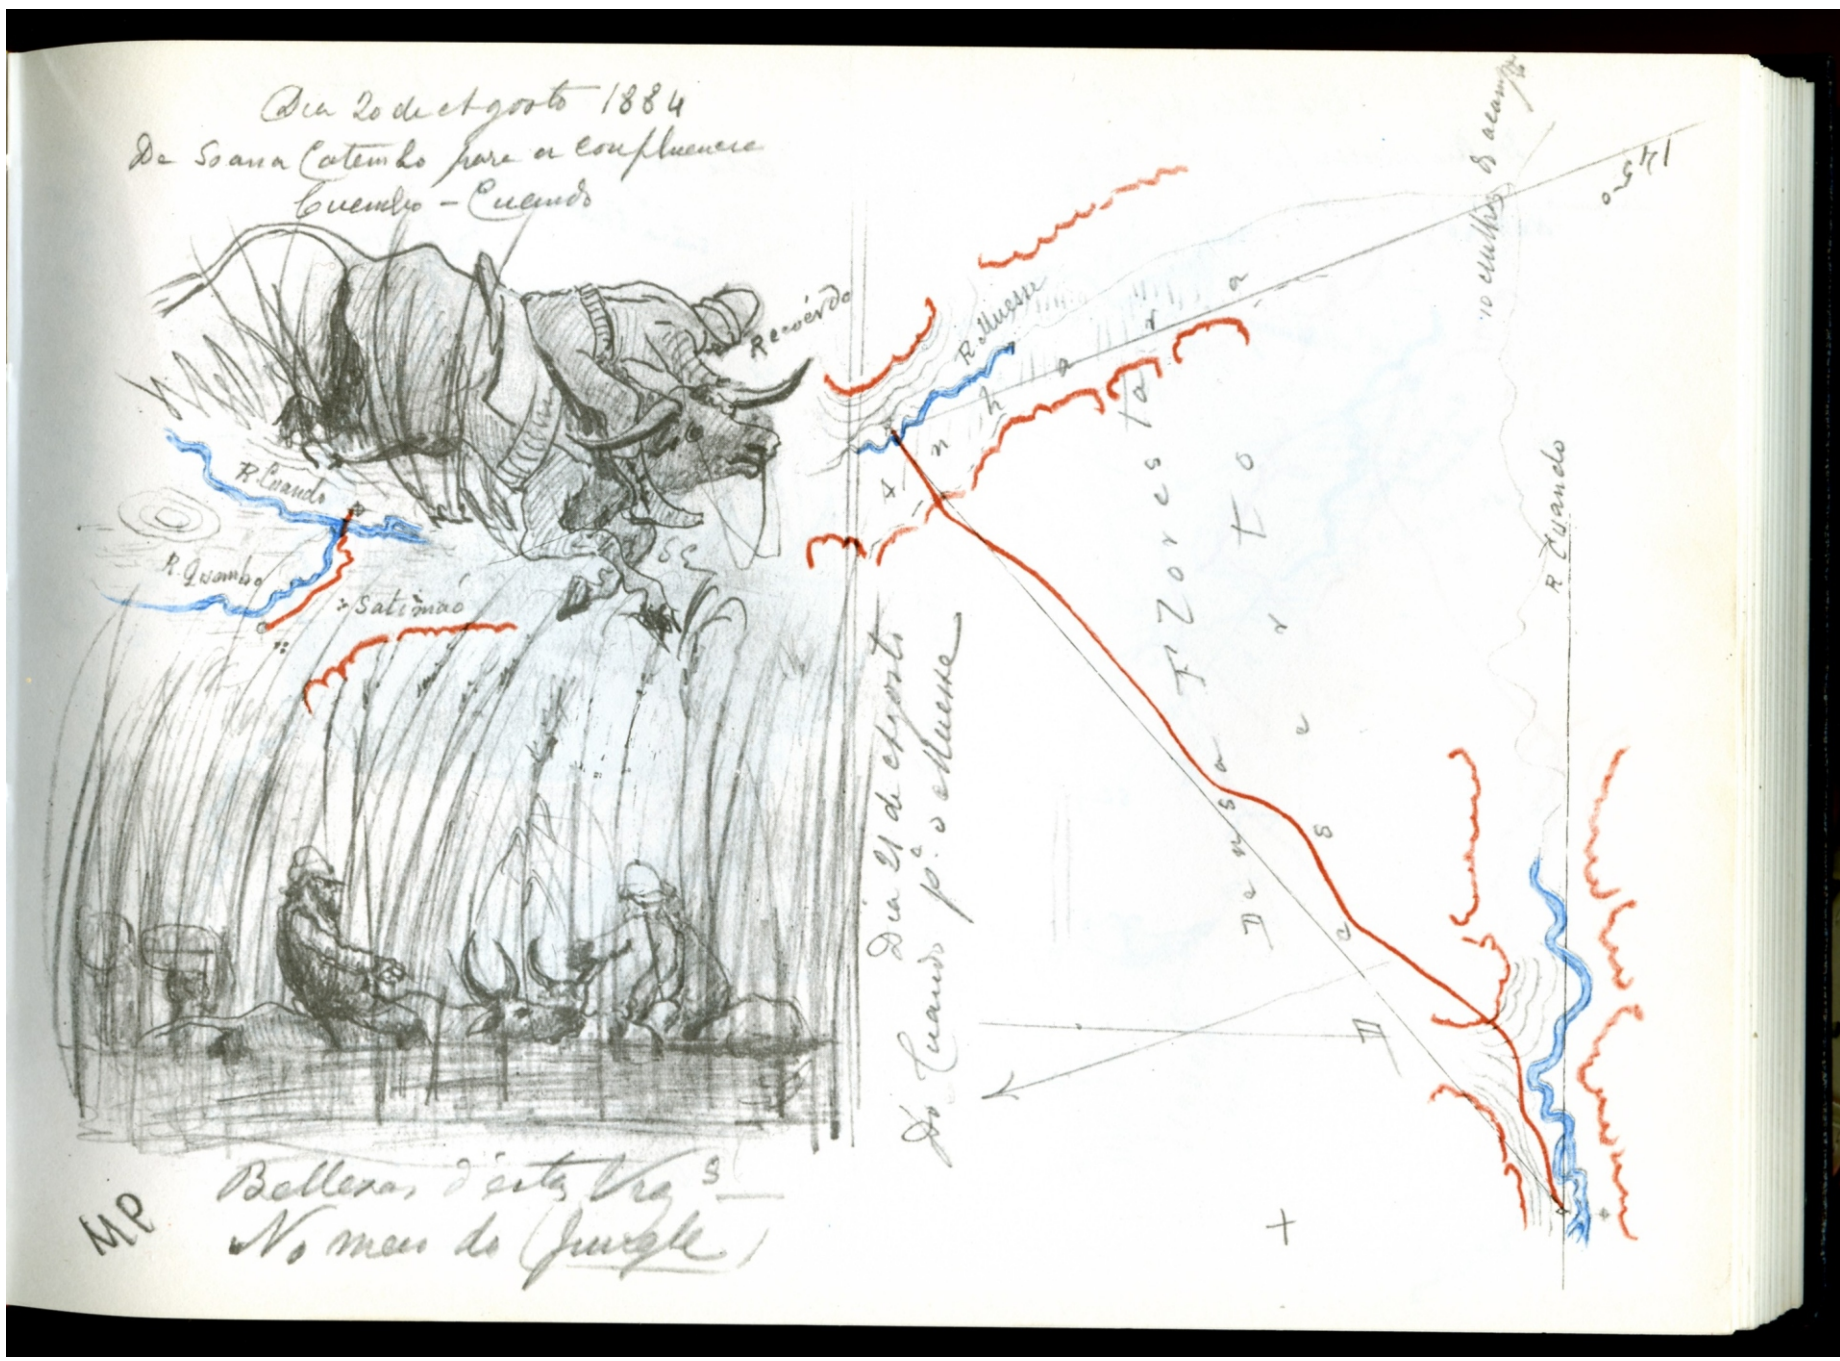 Dia 20 de Agosto 1884
De Soana Catembo para a confluencia
Cuembo - Cuando
Recuérdo
R. Cuando
R. Quembo
Satimaó
Bellezas d'esta
No meio do (Jungle)
MP
Dia 21 de Agosto
Do Cuando pª o Muesse
R. Muesse
Floresta
Densa
Deserto
R Cuando
10 milhas do acampto